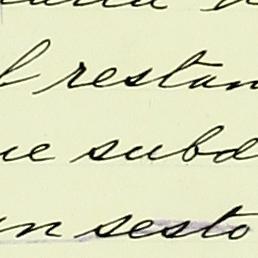 restan
ue subd
un sesto